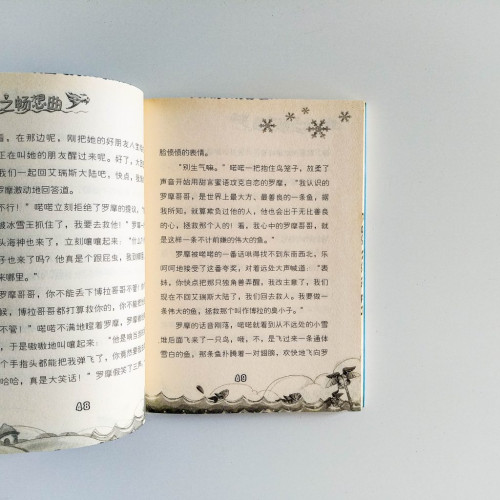 之畅想曲
着，在那边呢，刚把她的好朋友人
正在叫她的朋友醒过来呢。好了，大
我们一起回艾瑞斯大陆吧，快点，
罗摩激动地回答道。
不行！”喏喏立刻拒绝了罗摩的提议，“
被冰雪王抓住了，我要去救他！”罗摩一
头海神也来了，立刻嚷嚷起来：“
子也来了吗？他真是个跟屁虫，我到
来哪里。”
罗摩，你不能丢下博拉哥哥不管！
候，博拉哥哥都打算救你的，你不能
不行！”喏喏不满地瞪着罗摩。
，于是嗷嗷地叫起来：“他是响当当
个手指头都能把我弹飞了，你竟然要
哈哈，真是大笑话！”罗摩假笑了三声
48
脸愤愤的表情。
“别生气嘛。”喏喏一把抱住鸟笼子，放柔了
声音开始用甜言蜜语攻克自恋的罗摩，“我认识的
罗摩哥哥，是世界上最大方、最善良的一条鱼，据
我所知，就算欺负过他的人，他也会出于无比善良
的心，拯救那个人的！看，我心中的罗摩哥哥，就
是这样一条不计前嫌的伟大的鱼。”
罗摩被喏喏的一番话哄得找不到东南西北。乐
呵呵地接受了这番夸奖，对着远处大声喊道：“表
妹，你快点把那只独角兽弄醒，我改主意了，我们
现在不回艾瑞斯大陆了，我们回去救人。我要做一
条伟大的鱼，拯救那个叫作博拉的臭小子。”
罗摩的话音刚落，喏喏就看到从不远处的小雪
堆后面飞来了一只鸟，啊，不，是飞过来一条通体
雪白的鱼，那条鱼扑腾着一对翅膀，欢快地飞向罗
49